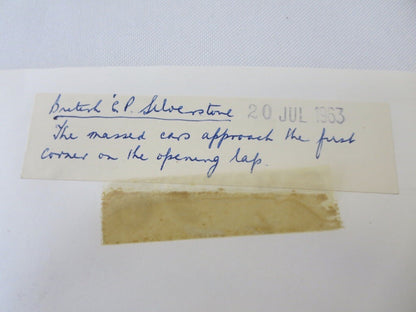 British G.P. Silverstone 20 JUL 1963
The massed cars approach the first
corner on the opening lap.